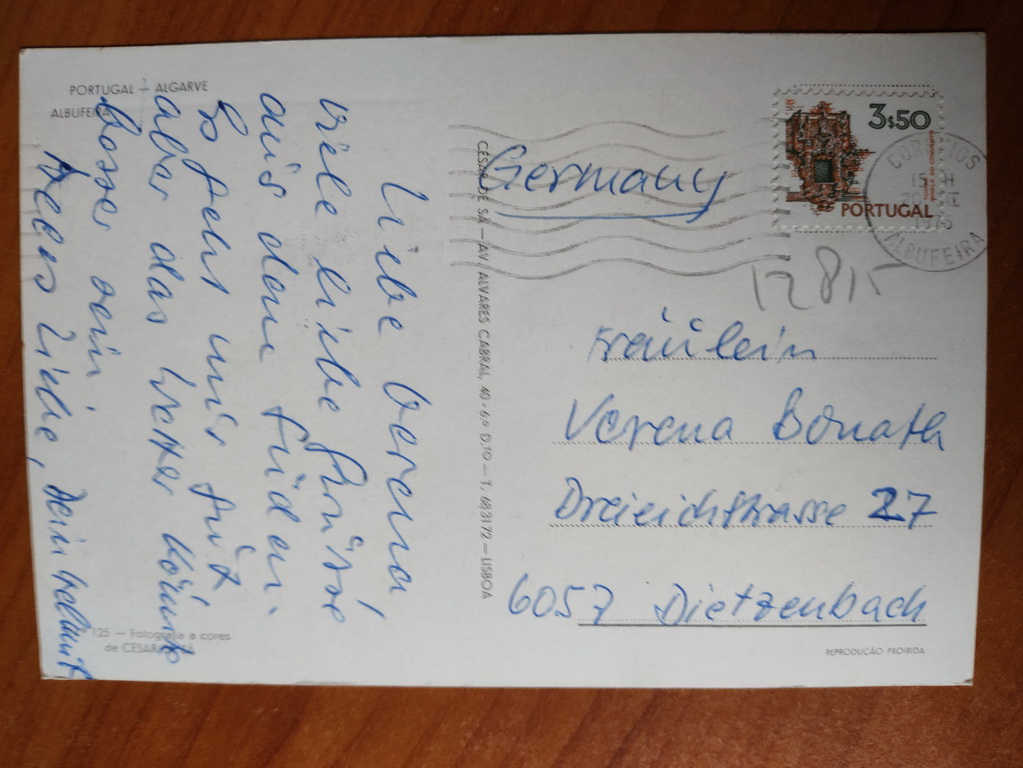 PORTUGAL — ALGARVE
ALBUFEIRA
Liebe Verena
viele liebe Grüsse
aus dem Süden.
Es geht mir gut
aber das Wetter könnte
besser sein
Alles Liebe, Dein Helmut
125 — Fotografia a cores
de CESAR DE SÁ
CÉSAR DE SÁ — AV. ALVARES CABRAL, 40-6.º D.TO — T. 683172 — LISBOA
Germany
3$50
PORTUGAL
CORREIOS
15 H
ALBUFEIRA
12815
Fräulein
Verena Bonath
Dreieichstrasse 27
6057 Dietzenbach
REPRODUÇÃO PROIBIDA